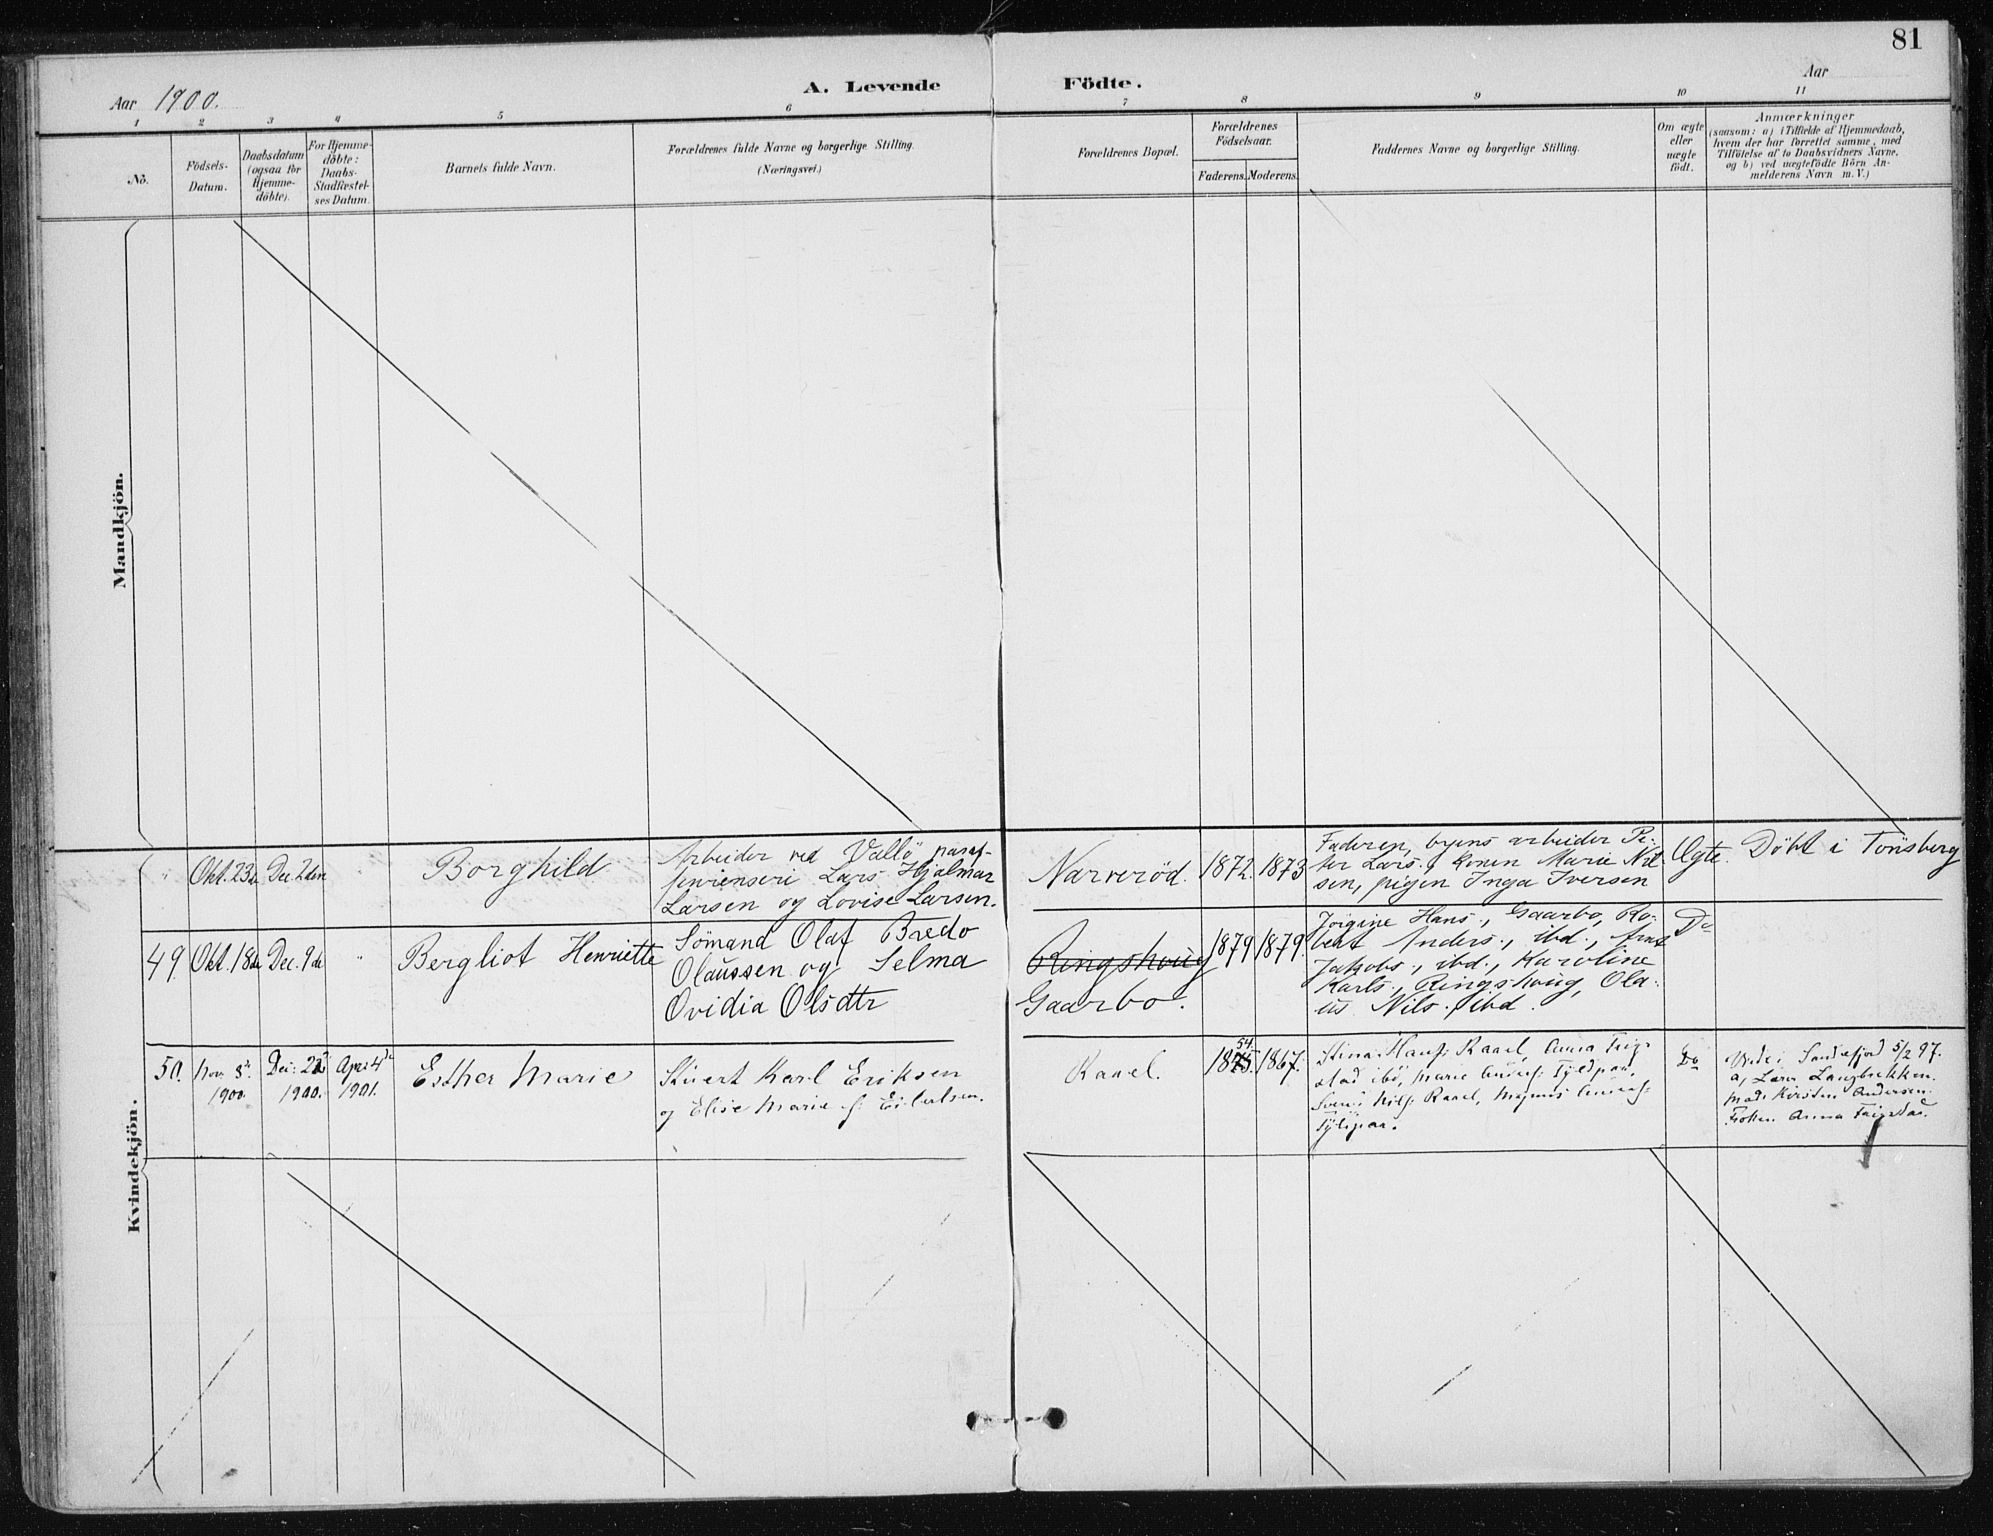 81
Aar 1900.
A. Levende Födte.
Aar
1 2 3 4 5 6 7 8 9 10 11
No.
Födsels-
Datum.
Daabsdatum
(ogsaa for
Hjemme-
döbte).
For Hjemme-
döbte:
Daabs-
Stadfæstel-
ses Datum.
Barnets fulde Navn.
Forældrenes fulde Navne og borgerlige Stilling.
(Næringsvei.)
Forældrenes Bopæl.
Forældrenes
Födselsaar.
Faderens. Moderens.
Faddernes Navne og borgerlige Stilling.
Om ægte
eller
uægte
födt.
Anmærkninger
(saasom: a) i Tilfælde af Hjemmedaab,
hvem der har forrettet samme, med
Tilföielse af to Daabsvidners Navne,
og b) ved uægtefödte Börn An-
melderens Navn m. V.)
Mandkjön.
Kvindekjön.
" Okt. 23de Dec. 2den " Borghild
Arbeider ved Vallö paraf-
Lars Hjalmar
Larsen og Lovise Larsen.
Narverød. 1872. 1873
Faderen, byens arbeider Pe-
ter Lars., Konen Marie Nil
sen, pigen Inga Iversen
Ægte. Döbt i Tönsberg
49. Okt. 18de Dec. 9de " Bergliot Henriette
Sömand Olaf Bredo
Olaussen og Selma
Ovidia Olsdtr
Ringshoug
Gaarbo.
1879 1879.
Jørgine Hans., Gaarbo, Ro-
bert Anders., ibd., Arnt
Jakobs., ibd., Karoline
Karls., Ringshoug, Ola-
us Nils. ibd.
Do
50. Nov. 8de
1900.
Dec: 23de
1900.
Apr: 4de
1901.
Esther Marie
Karl Eriksen
og Elise Marie f.
Rael. 1867.
Stina Hans: Rael, Anna
Marie
Nils: Rael, Magnus
Do
Viede i Sandefjord 5/2 97.
a, Lærer Langbrekken.
Mad: Kirstin Andersen.
Frøken Anna